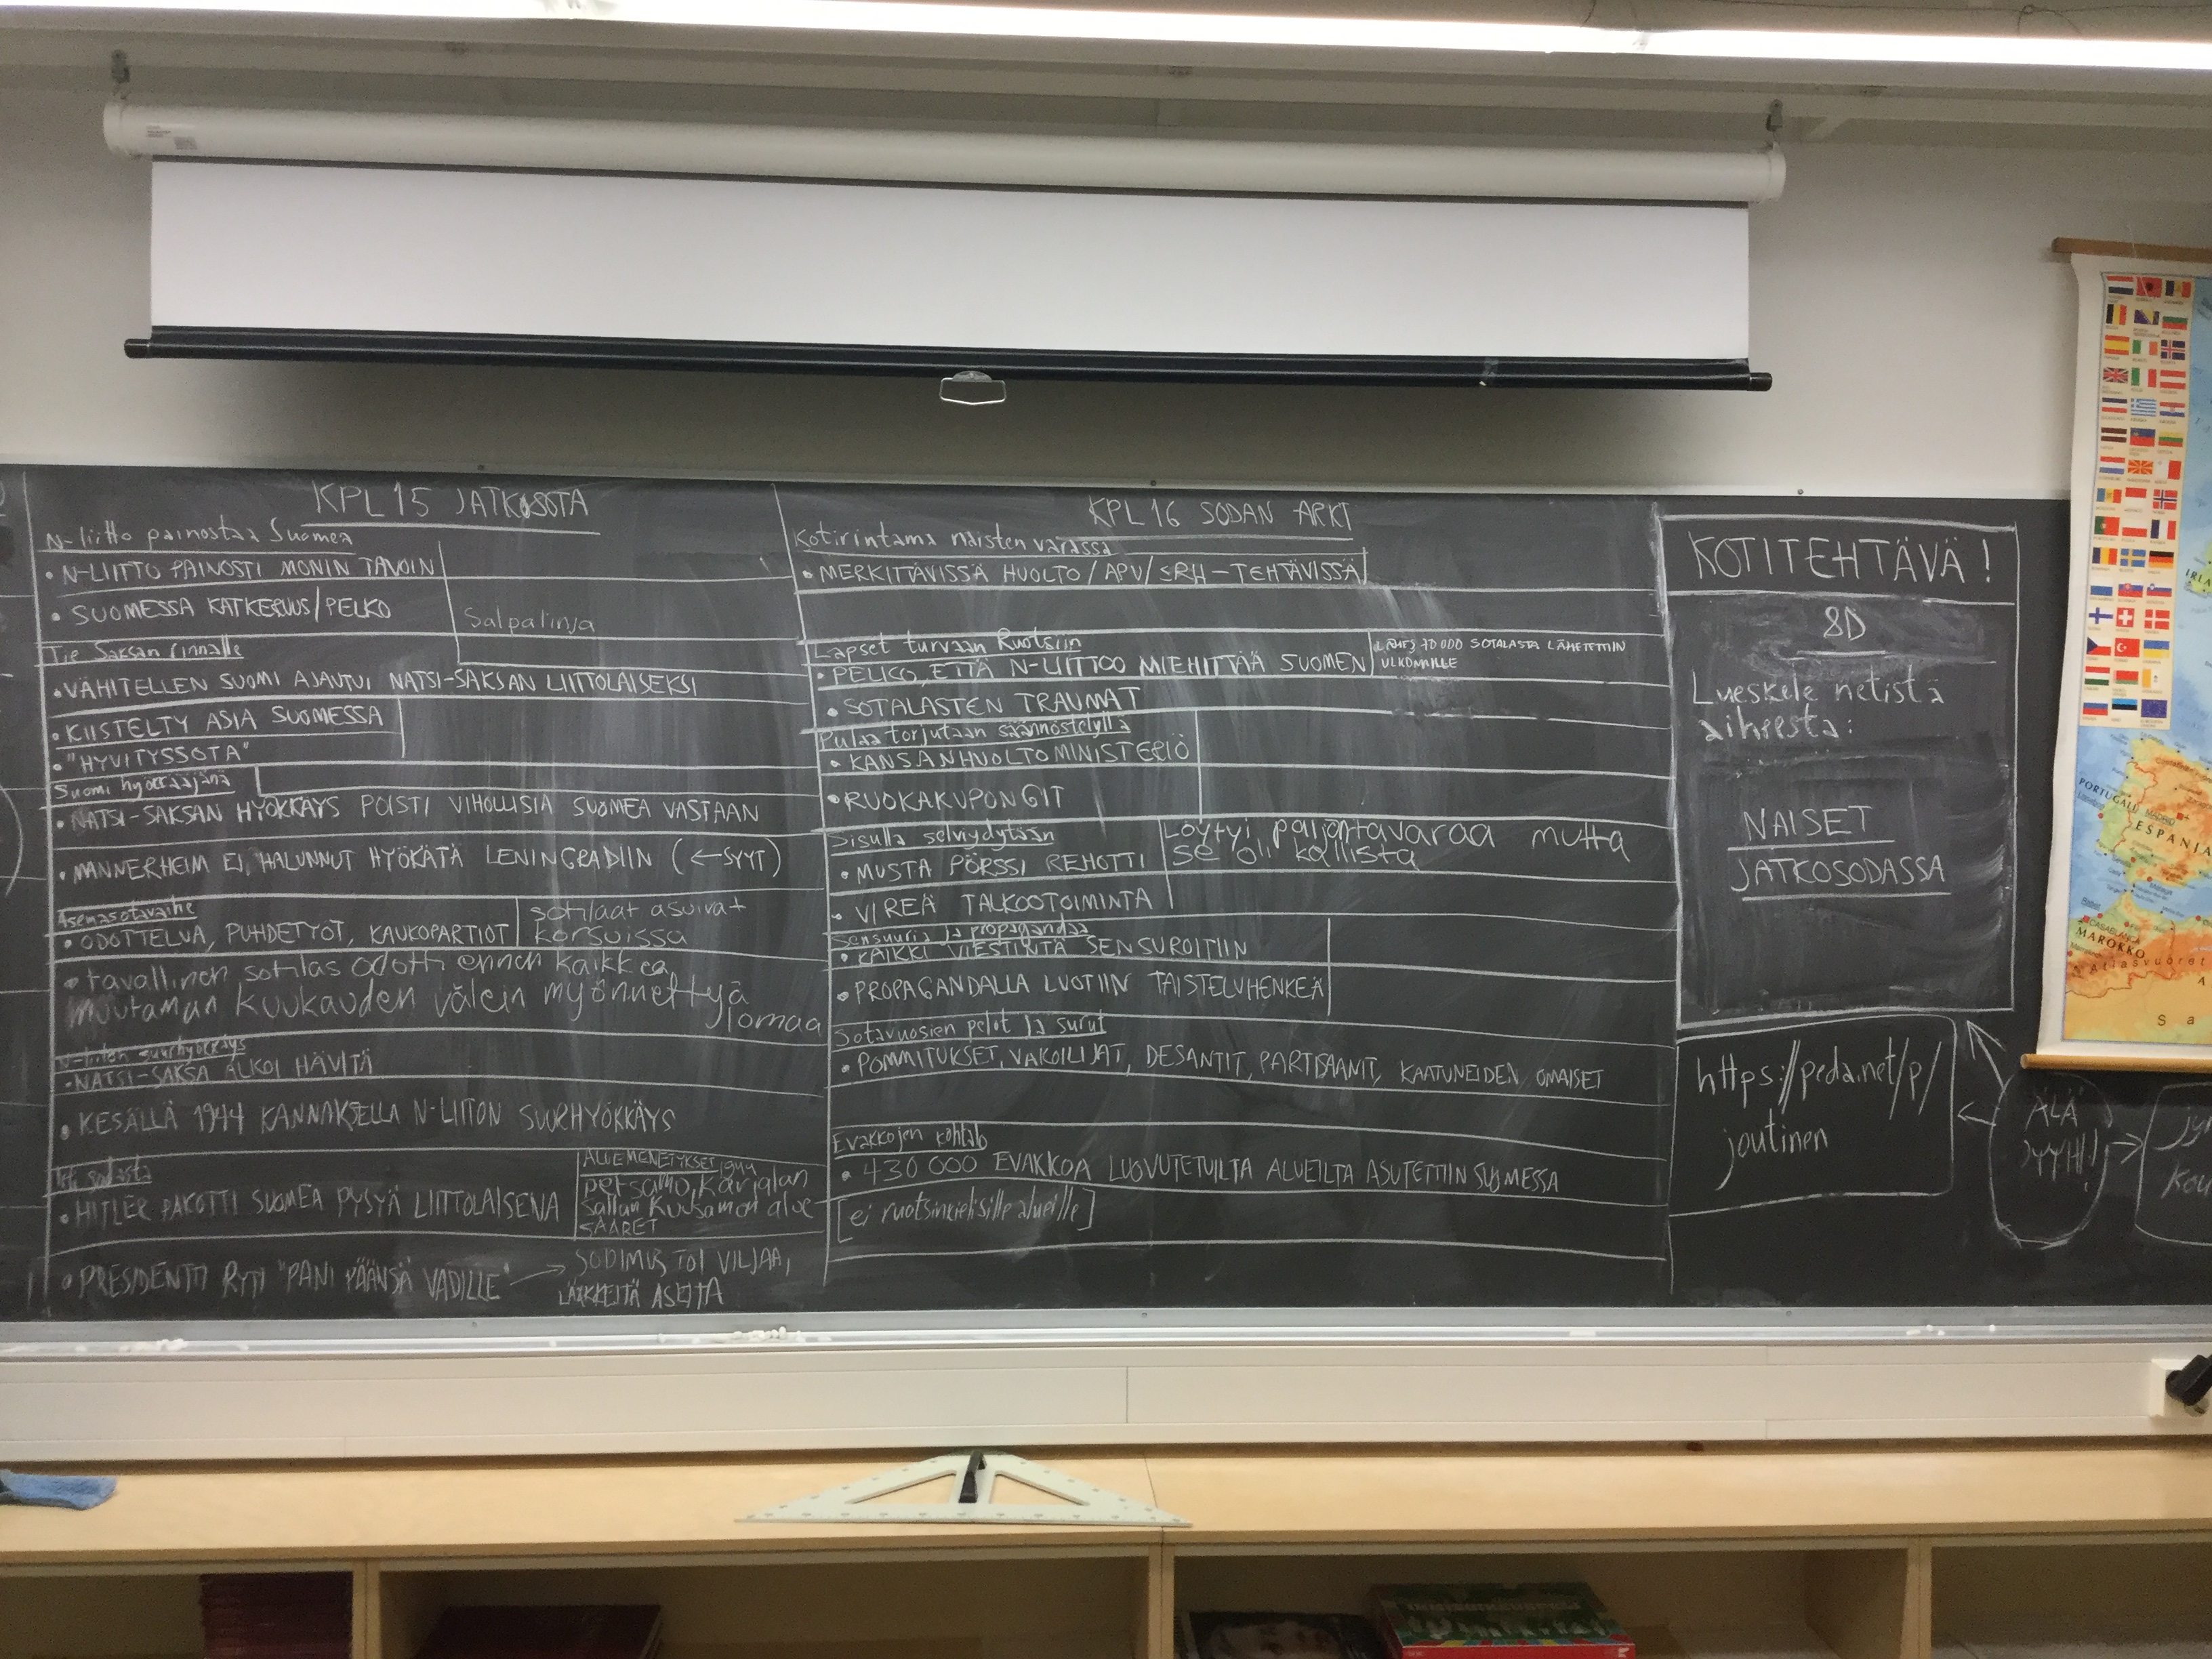 KPL 15 JATKOSOTA
N-liitto painostaa Suomea
• N-LIITTO PAINOSTI MONIN TAVOIN
• SUOMESSA KATKERUUS/PELKO
Salpalinja
Tie Saksan rinnalle
• VÄHITELLEN SUOMI AJAUTUI NATSI-SAKSAN LIITTOLAISEKSI
• KIISTELTY ASIA SUOMESSA
• "HYVITYSSOTA"
Suomi hyökkääjänä
• NATSI-SAKSAN HYÖKKÄYS POISTI VIHOLLISIA SUOMEA VASTAAN
• MANNERHEIM EI HALUNNUT HYÖKÄTÄ LENINGRADIIN (←SYYT)
Asemasotavaihe
• ODOTTELUA, PUHDETYÖT, KAUKOPARTIOT
sotilaat asuivat
korsuissa
• tavallinen sotilas odotti ennen kaikkea
muutaman kuukauden välein myönnettyä
lomaa
N-liiton suurhyökkäys
• NATSI-SAKSA ALKOI HÄVITÄ
• KESÄLLÄ 1944 KANNAKSELLA N-LIITON SUURHYÖKKÄYS
Irti sodasta
• HITLER PAKOTTI SUOMEA PYSYÄ LIITTOLAISENA
ALUEMENETYKSET
petsamo, karjalan
Sallan Kuusamon alue
SAARET
• PRESIDENTTI RYTI "PANI PÄÄNSÄ VADILLE" →
TOI VILJAA,
LÄÄKKEITÄ ASEITA
KPL 16 SODAN ARKI
Kotirintama naisten varassa
• MERKITTÄVISSÄ HUOLTO/APV/SRH-TEHTÄVISSÄ
Lapset turvaan Ruotsiin
• PELKO, ETTÄ N-LIITTOO MIEHITTÄÄ SUOMEN
LÄHES 70 000 SOTALASTA LÄHETETTIIN
ULKOMAILLE
• SOTALASTEN TRAUMAT
Pulaa torjutaan säännöstelyllä
• KANSANHUOLTOMINISTERIÖ
• RUOKAKUPONGIT
Sisulla selviydytään
• MUSTA PÖRSSI REHOTTI
Löytyi paljontavaraa mutta
se oli kallista
• VIREÄ TALKOOTOIMINTA
Sensuuria ja propagandaa
• KAIKKI VIESTINTÄ SENSUROITIIN
• PROPAGANDALLA LUOTIIN TAISTELUHENKEÄ
Sotavuosien pelot ja surut
• POMMITUKSET, VAKOILIJAT, DESANTIT, PARTISAANIT, KAATUNEIDEN OMAISET
Evakkojen kohtalo
• 430 000 EVAKKOA LUOVUTETUILTA ALUEILTA ASUTETTIIN SUOMESSA
[ei ruotsinkielisille alueille]
KOTITEHTÄVÄ!
8D
Lueskele netistä
aiheesta:
NAISET
JATKOSODASSA
https://peda.net/p/
joutinen
ÄLÄ
PYYHI!
PORTUGALI
MADRID
ESPANJA
CASABLANCA
MAROKKO
Atlasvuoret
S a